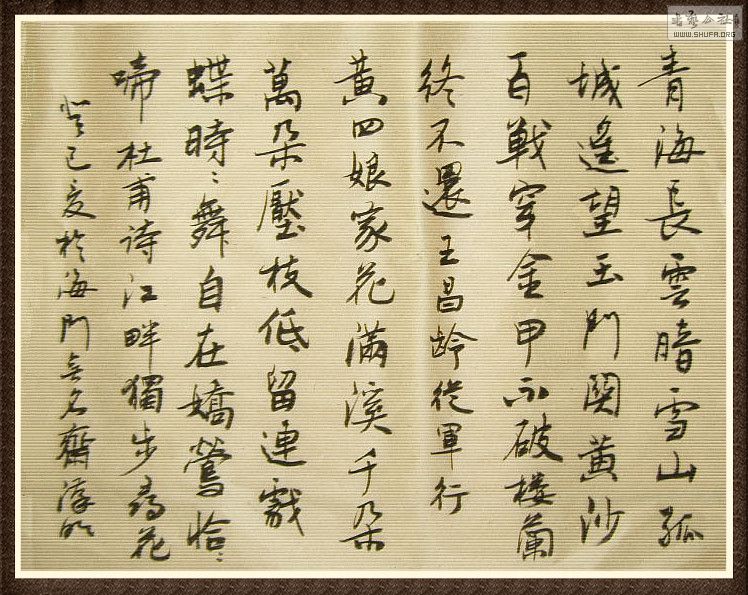 青海長雲暗雪山孤
城遙望玉門関黄沙
百戦穿金甲不破楼蘭
終不還王昌齡從軍行
黃四娘家花滿溪千朶
萬朶壓枝低留連戲
蝶時〻舞自在嬌鶯恰〻
啼杜甫诗江畔獨步尋花
癸巳夏於海門無名齋
书艺公社
WWW.SHUFA.ORG